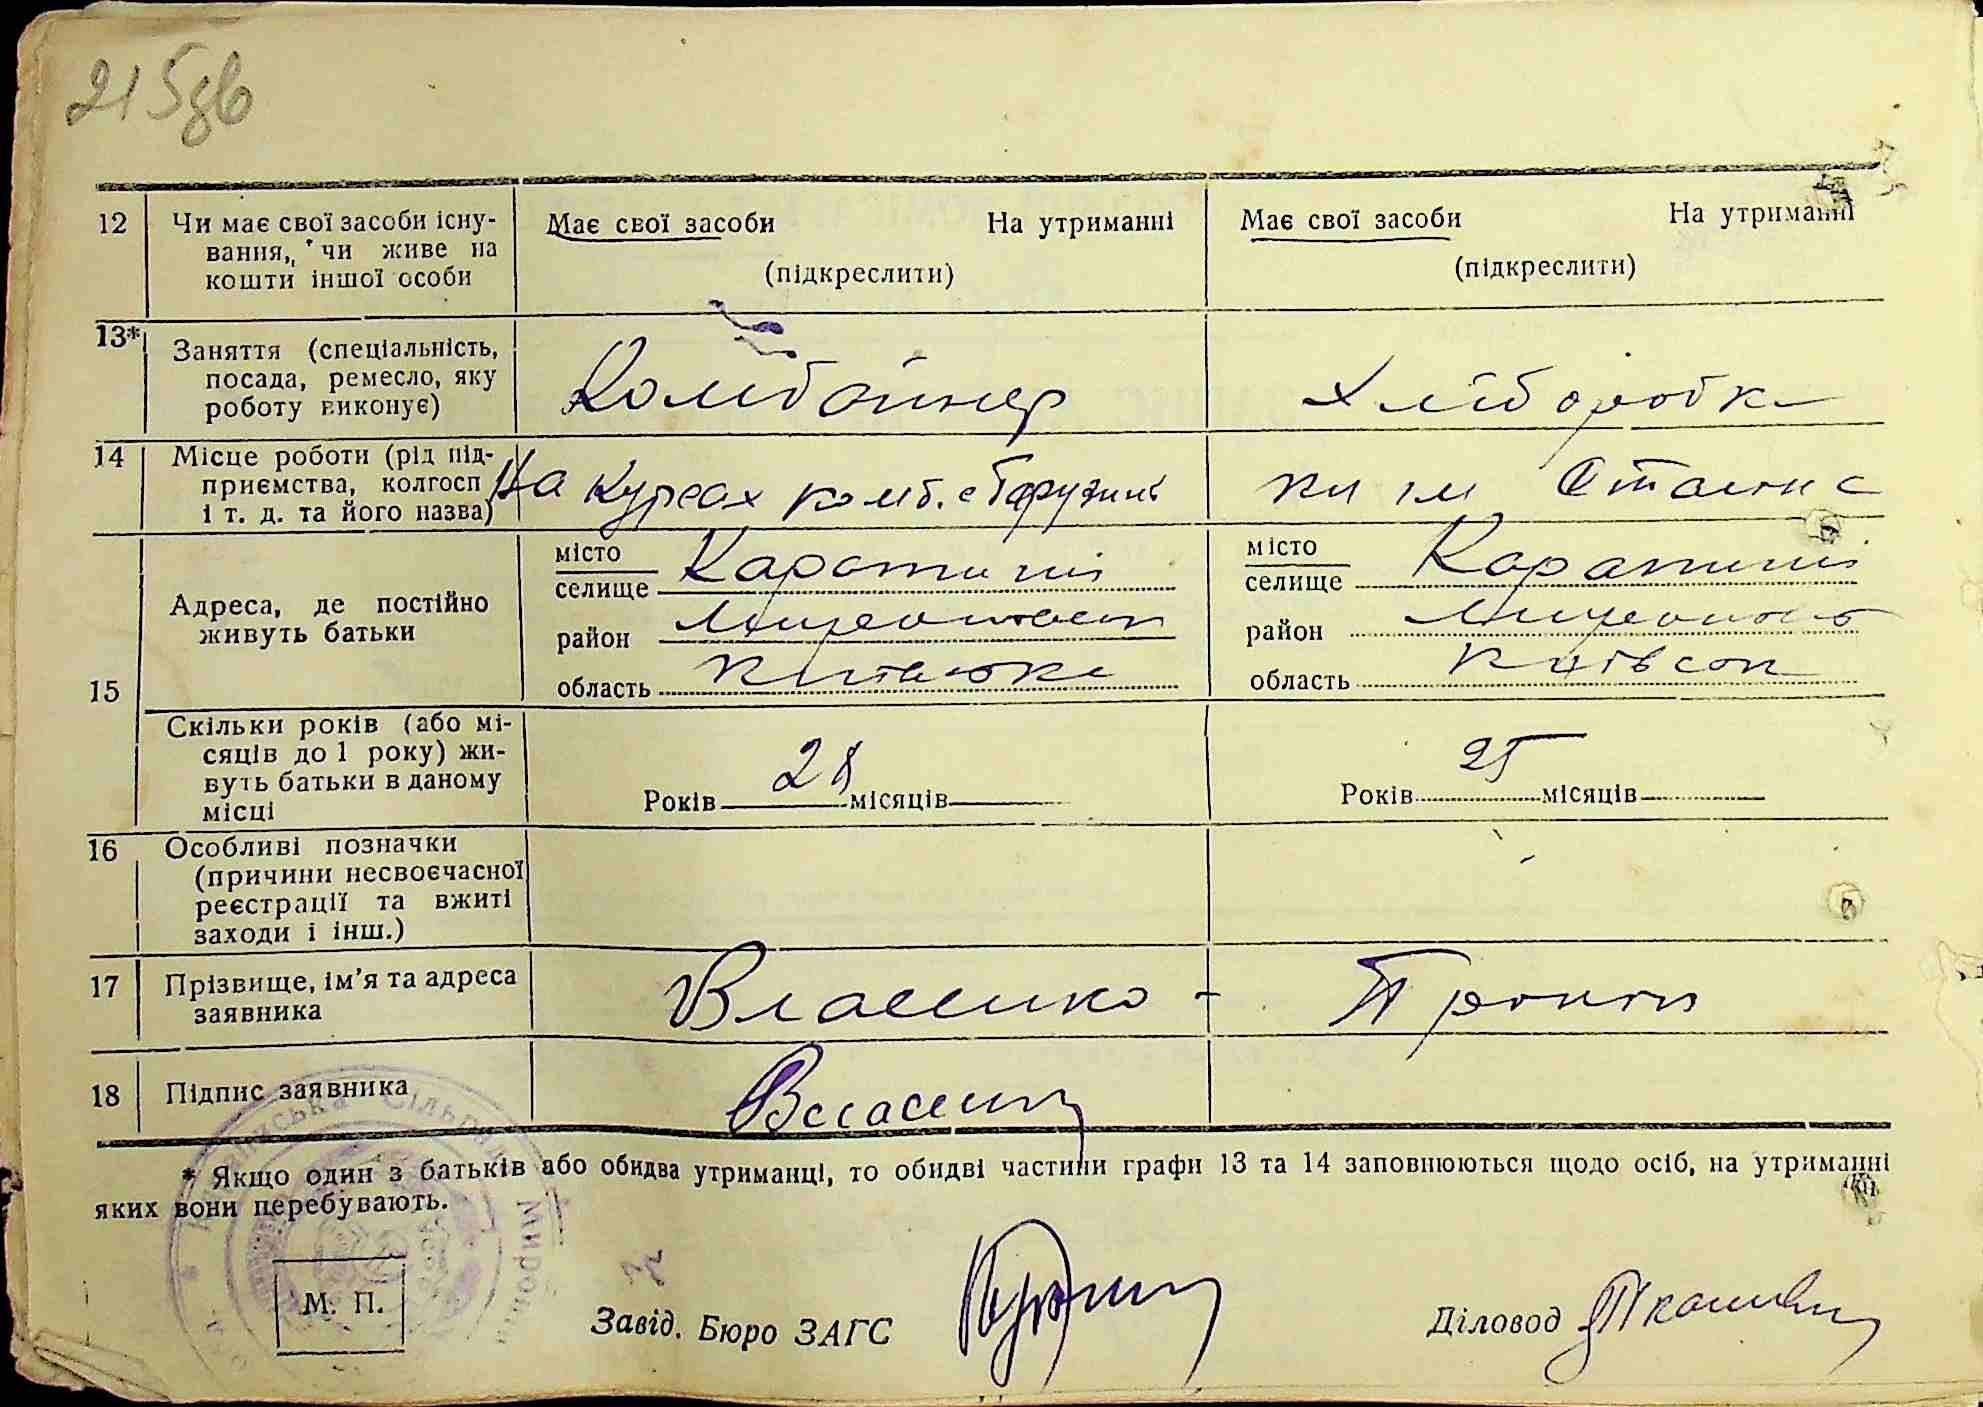 215дв
12 Чи має свої засоби існу-
вання, чи живе на
кошти іншої особи
Має свої засоби На утриманні
(підкреслити)
Має свої засоби На утриманні
(підкреслити)
13* Заняття (спеціальність,
посада, ремесло, яку
роботу виконує)
Комбайнер
Хліборобка
14 Місце роботи (рід під-
приємства, колгосп
і т. д. та його назва)
На курсах комб.
кг ім Сталіна
15 Адреса, де постійно
живуть батьки
місто
селище Карапиші
район
область
місто
селище Карапиші
район
область Київськ
Скільки років (або мі-
сяців до 1 року) жи-
вуть батьки в даному
місці
Років 28 місяців
Років 25 місяців
16 Особливі позначки
(причини несвоєчасної
реєстрації та вжиті
заходи і інш.)
17 Прізвище, ім'я та адреса
заявника
Власенко -
18 Підпис заявника
* Якщо один з батьків або обидва утриманці, то обидві частини графи 13 та 14 заповнюються щодо осіб, на утриманні
яких вони перебувають.
М. П.
Завід. Бюро ЗАГС
Діловод